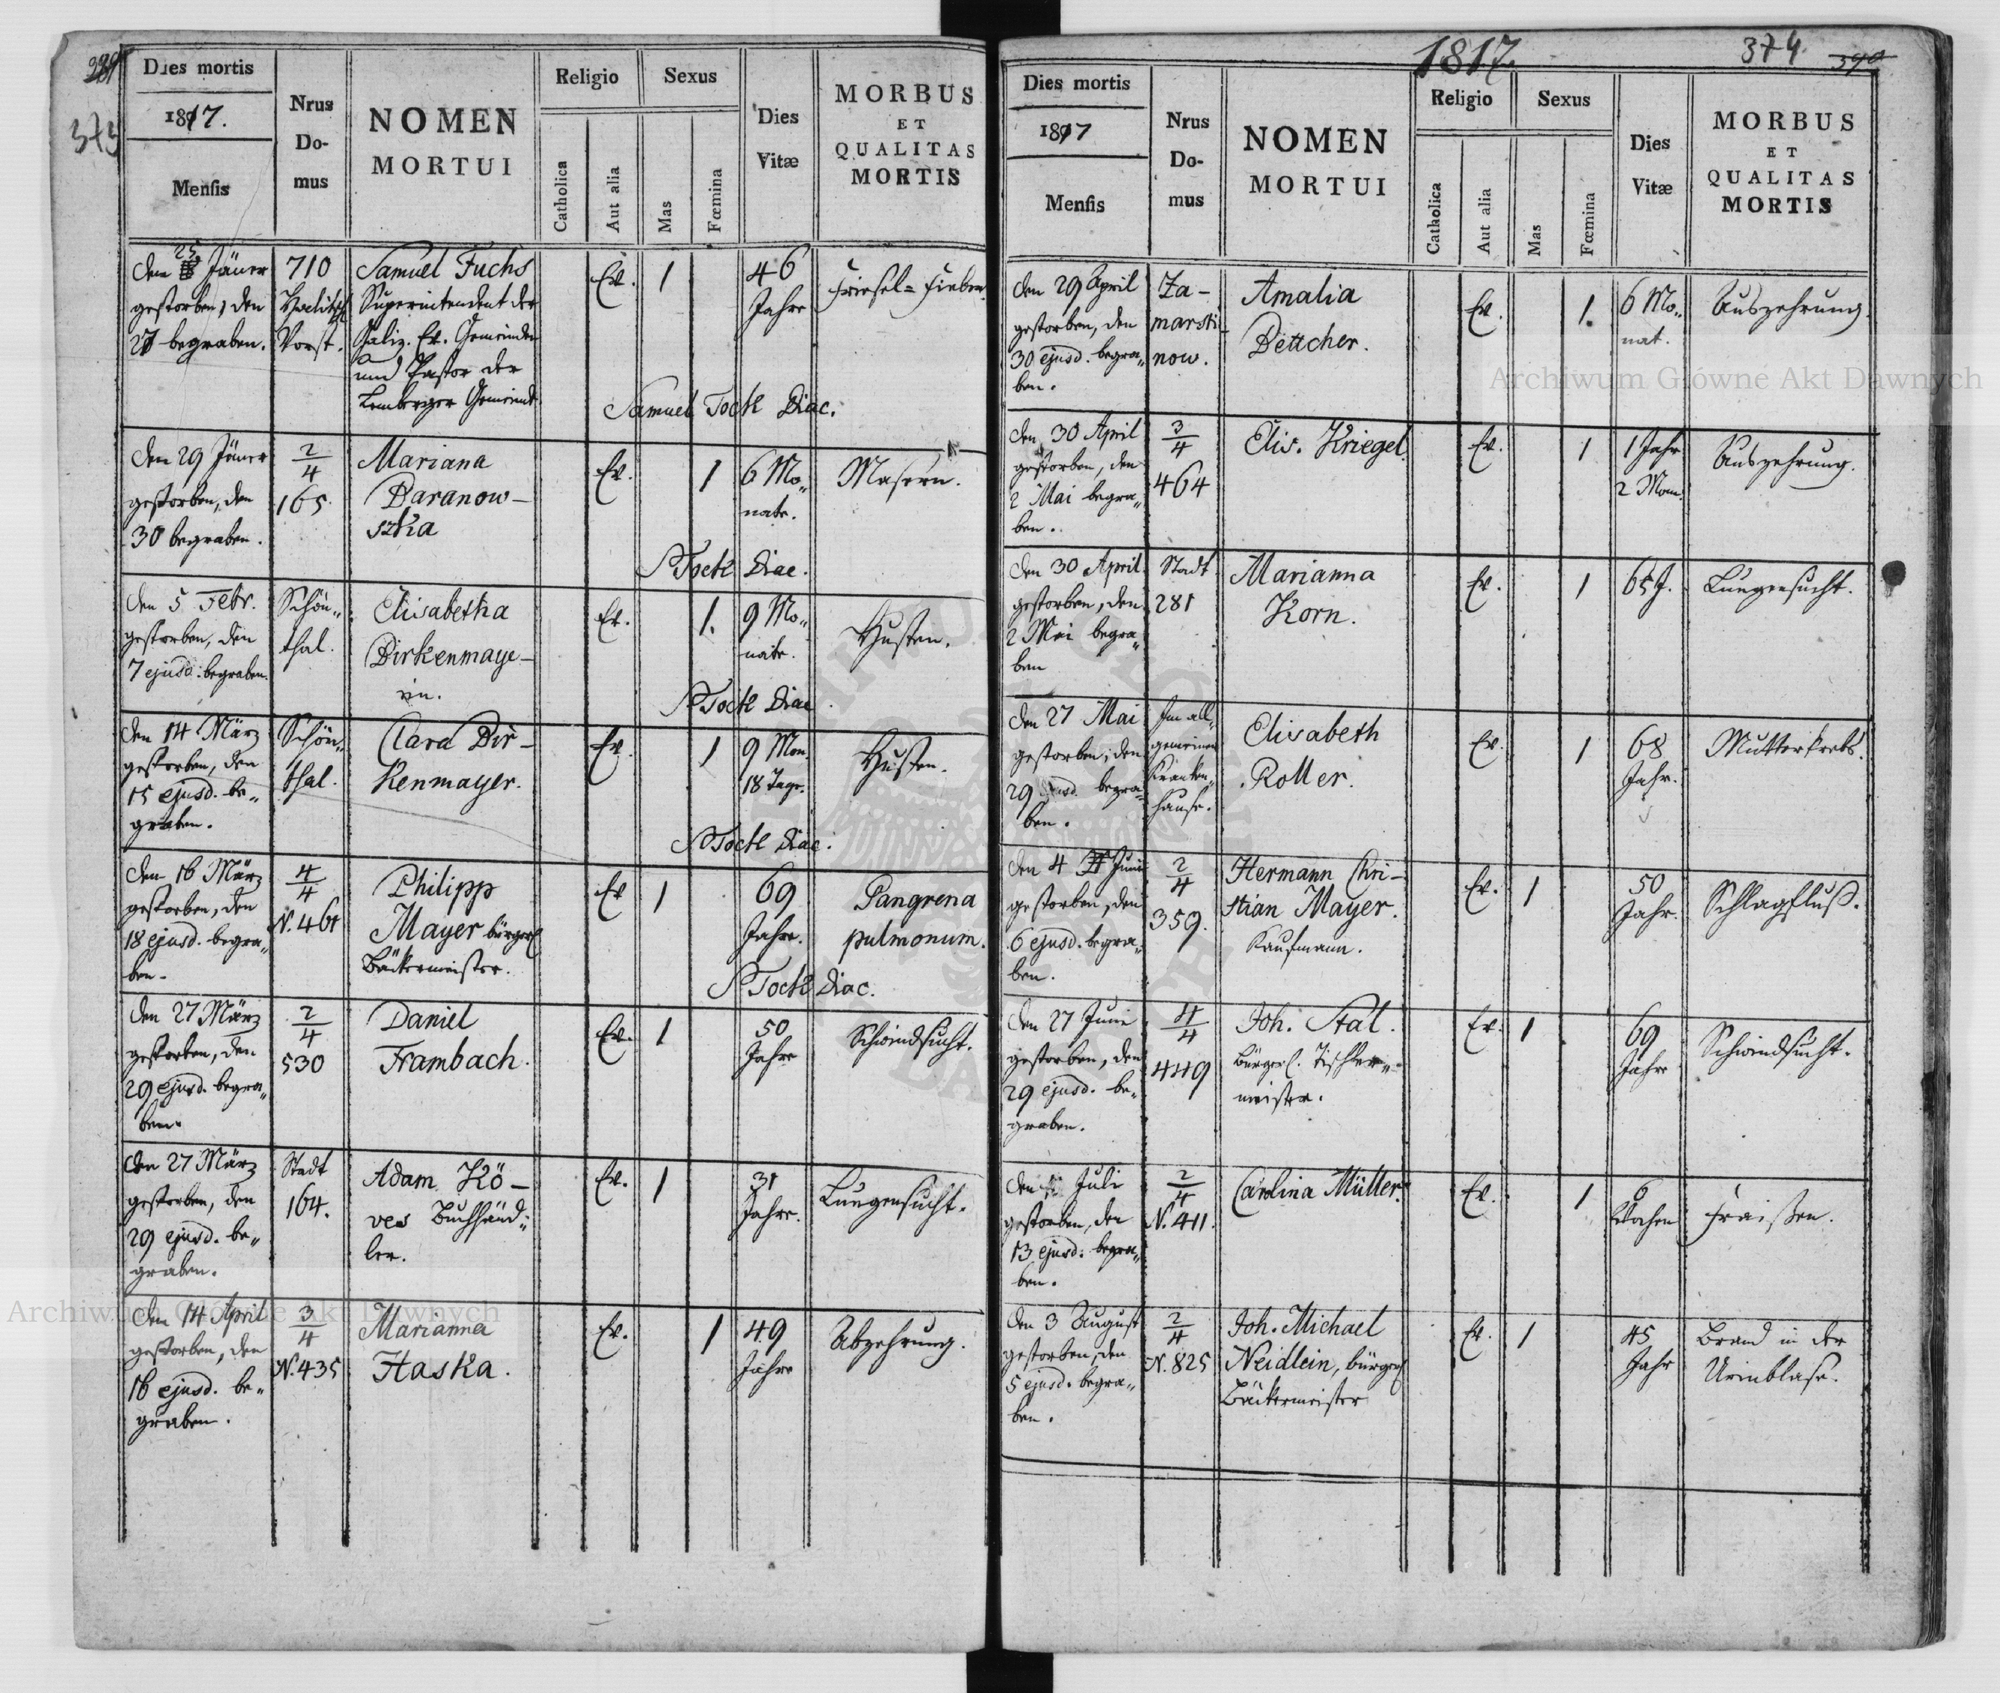 389
373
Dies mortis
1817.
Mensis
Nrus
Do-
mus
NOMEN
MORTUI
Religio
Catholica
Aut alia
Sexus
Mas
Fœmina
Dies
Vitæ
MORBUS
ET
QUALITAS
MORTIS
den 25 Jäner
gestorben, den
27 begraben.
710
Halitsch
Vorst.
Samuel Fuchs
Superintendent der
Galiz. Ev. Gemeinden
und Pastor der
Lemberger Gemeinde
Ev.
1
46
Jahre
Friesel=Fieber.
Samuel Tock Diac.
den 29 Jäner
gestorben, den
30 begraben.
2/4
165
Mariana
Baranow-
szka
Ev.
1
6 Mo-
nate.
Masern.
S Tock Diac.
den 5 Febr.
gestorben, den
7 ejusd. begraben.
Schön-
thal.
Elisabetha
Birkenmaye-
rin.
Ev.
1.
9 Mo-
nate.
Husten.
S Tock Diac.
den 14 März
gestorben, den
15 ejusd. be-
graben.
Schön-
thal.
Clara Bir-
kenmayer.
Ev.
1
9 Mon.
18 Tage.
Husten.
S Tock Diac.
den 16 März
gestorben, den
18 ejusd. begra-
ben.
4/4
N. 461
Philipp
Mayer bürgerl
Bäckermeister.
Ev
1
69
Jahre.
Gangrena
pulmonum.
S Tock Diac.
den 27 März
gestorben, den
29 ejusd. begra-
ben.
2/4
530
Daniel
Frambach.
Ev.
1
50
Jahre
Schwindsucht.
den 27 März
gestorben, den
29 ejusd. be-
graben.
Stadt
164.
Adam Kö-
ves Buchhänd-
ler.
Ev.
1
31
Jahre.
Lungensucht.
den 14 April
gestorben, den
16 ejusd. be-
graben.
3/4
N. 435
Marianna
Haska.
Ev.
1
49
Jahre
Abzehrung.
1817.
374
390
Dies mortis
1817
Mensis
Nrus
Do-
mus
NOMEN
MORTUI
Religio
Catholica
Aut alia
Sexus
Mas
Fœmina
Dies
Vitæ
MORBUS
ET
QUALITAS
MORTIS
den 29 April
gestorben, den
30 ejusd. begra-
ben.
Za-
marsti-
now.
Amalia
Bettcher.
Ev.
1.
6 Mo-
nat.
Auszehrung.
den 30 April
gestorben, den
2 Mai begra-
ben.
3/4
464
Elis. Kriegel.
Ev.
1
1 Jahr
2 Mon.
Auszehrung.
den 30 April
gestorben, den
2 Mai begra-
ben
Stadt
281
Marianna
Korn.
Ev.
1
65 J.
Lungensucht.
den 27 Mai
gestorben, den
29 ejusd. begra-
ben.
Im all-
gemeinen
Kranken-
hause.
Elisabeth
Roller.
Ev.
1
68
Jahr.
Mutterkrebs.
den 4 Juni
gestorben, den
6 ejusd. begra-
ben.
2/4
359.
Hermann Chri-
stian Mayer.
Kaufmann.
Ev.
1
50
Jahr.
Schlagfluß.
den 27 Juni
gestorben, den
29 ejusd. be-
graben.
4/4
449
Joh. Stal.
bürgerl. Tischler-
meister.
Ev.
1
69
Jahre
Schwindsucht.
den Juli
gestorben, den
13 ejusd. begra-
ben.
2/4
N. 411.
Carolina Müller.
Ev.
1
6
Wochen
Fraißen.
den 3 August
gestorben, den
5 ejusd. begra-
ben.
2/4
N. 825
Joh. Michael
Neidlein, bürgerl
Bäckermeister
Ev.
1
45
Jahr
Brand in der
Urinblase.
Archiwum Główne Akt Dawnych
Archiwum Główne Akt Dawnych